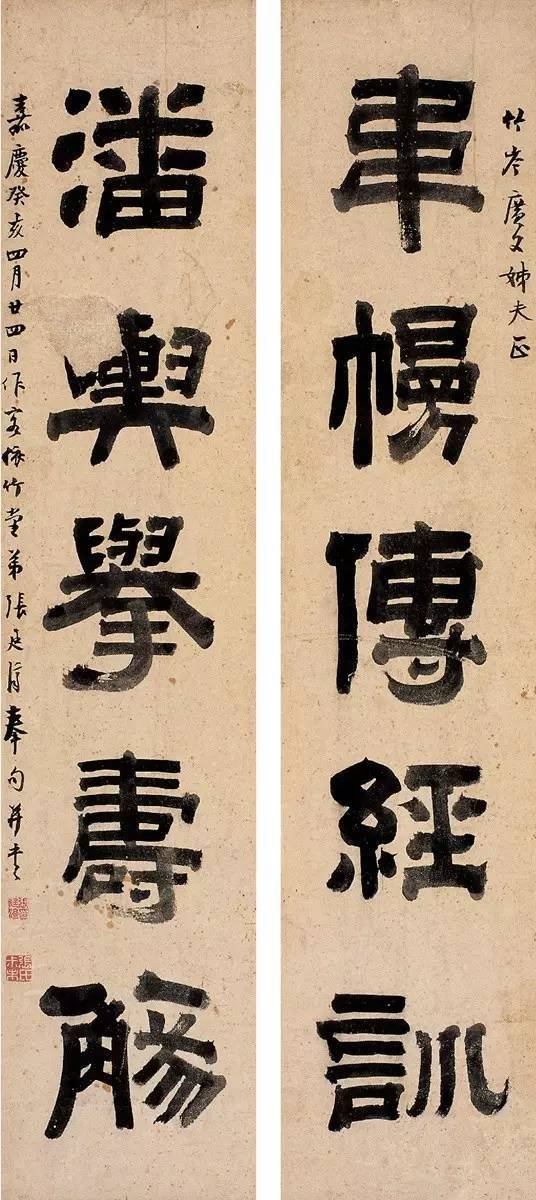 竹岑廣文姊夫正
韋幔傳經訓
潘輿擧壽觴
嘉慶癸亥四月廿四日作客竹堂弟張廷濟奉句并書